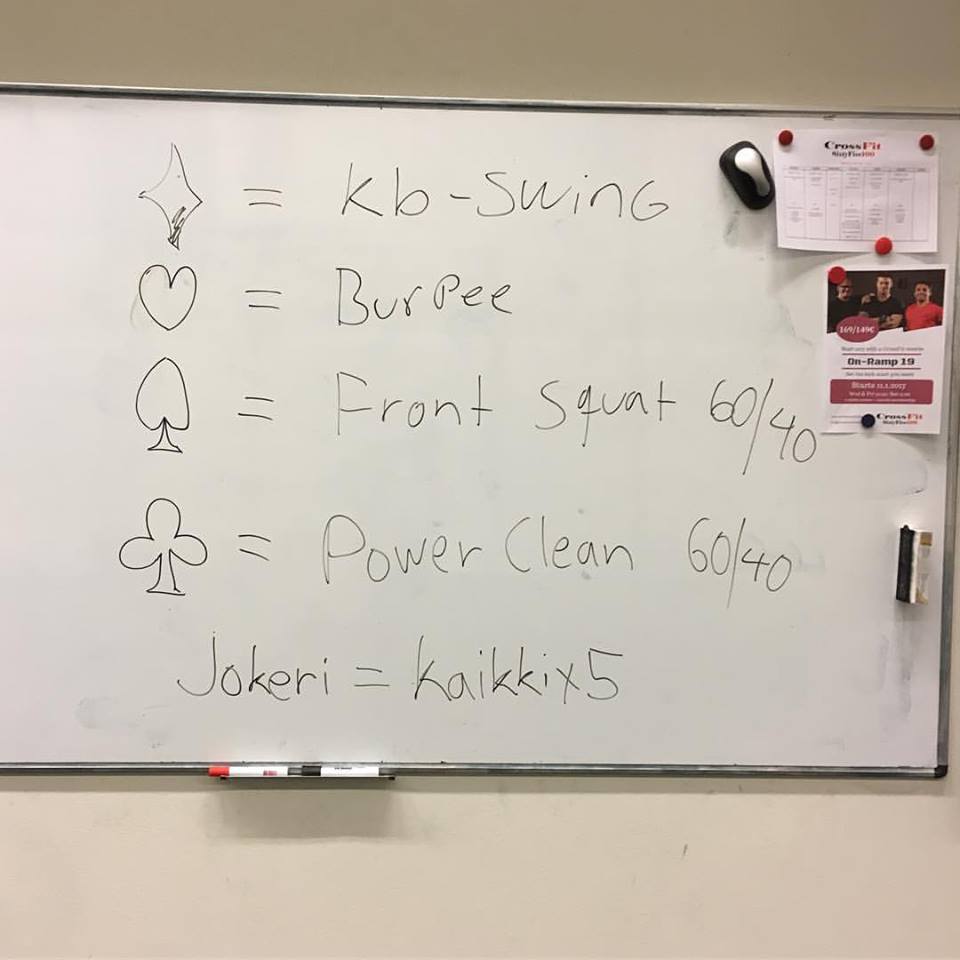 ♦ = kb-Swing
♡ = Burpee
♤ = Front Squat 60/40
♧ = Power Clean 60/40
Jokeri = kaikki x5
CrossFit
169/149€
On-Ramp 19
Starts 11.1.2017
CrossFit